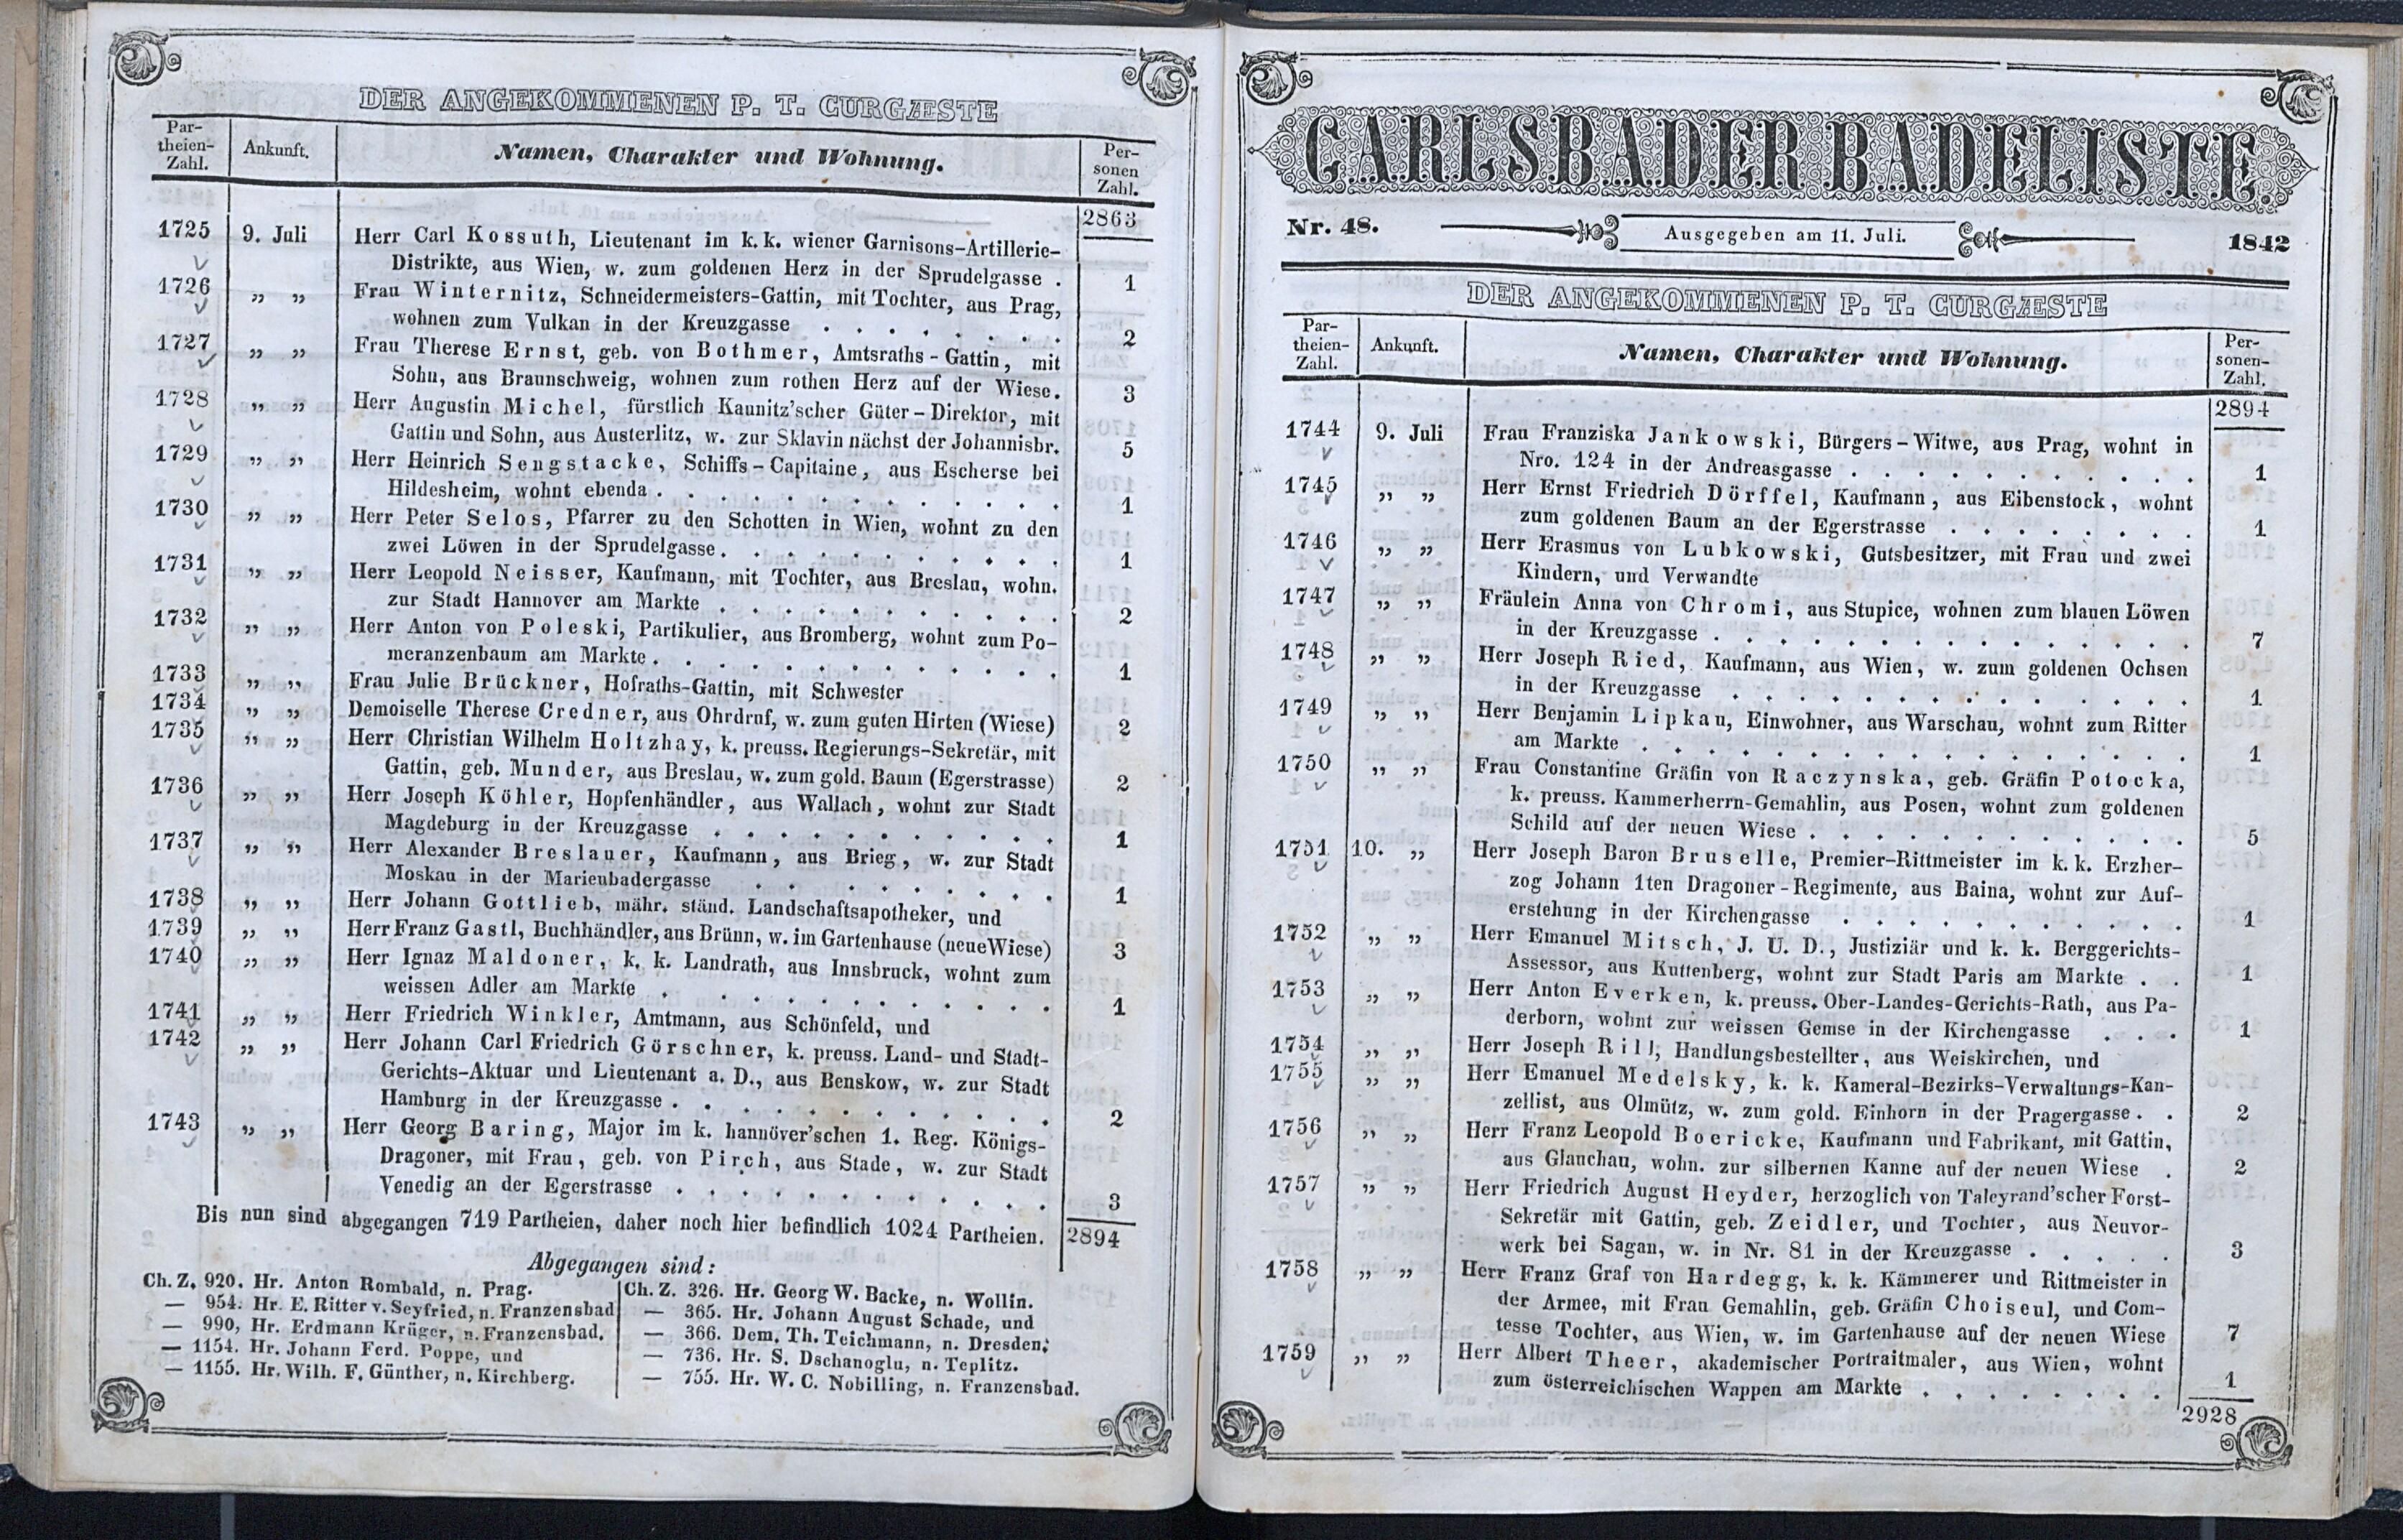 DER ANGEKOMMENEN P. T. CURGÆSTE
Par-
theien-
Zahl.
Ankunft.
Namen, Charakter und Wohnung.
Per-
sonen
Zahl.
2863
1725 9. Juli Herr Carl Kossuth, Lieutenant im k. k. wiener Garnisons-Artillerie-
Distrikte, aus Wien, w. zum goldenen Herz in der Sprudelgasse . 1
1726 „ „ Frau Winternitz, Schneidermeisters-Gattin, mit Tochter, aus Prag,
wohnen zum Vulkan in der Kreuzgasse . . . . . . . 2
1727 „ „ Frau Therese Ernst, geb. von Bothmer, Amtsraths-Gattin, mit
Sohn, aus Braunschweig, wohnen zum rothen Herz auf der Wiese. 3
1728 „ „ Herr Augustin Michel, fürstlich Kaunitz'scher Güter-Direktor, mit
Gattin und Sohn, aus Austerlitz, w. zur Sklavin nächst der Johannisbr. 5
1729 „ „ Herr Heinrich Sengstacke, Schiffs-Capitaine, aus Escherse bei
Hildesheim, wohnt ebenda . . . . . . . . . . . . 1
1730 „ „ Herr Peter Selos, Pfarrer zu den Schotten in Wien, wohnt zu den
zwei Löwen in der Sprudelgasse. . . . . . . . . . . 1
1731 „ „ Herr Leopold Neisser, Kaufmann, mit Tochter, aus Breslau, wohn.
zur Stadt Hannover am Markte . . . . . . . . . . . 2
1732 „ „ Herr Anton von Poleski, Partikulier, aus Bromberg, wohnt zum Po-
meranzenbaum am Markte. . . . . . . . . . . . . 1
1733 „ „ Frau Julie Brückner, Hofraths-Gattin, mit Schwester
1734 „ „ Demoiselle Therese Credner, aus Ohrdruf, w. zum guten Hirten (Wiese) 2
1735 „ „ Herr Christian Wilhelm Holtzhay, k. preuss. Regierungs-Sekretär, mit
Gattin, geb. Munder, aus Breslau, w. zum gold. Baum (Egerstrasse) 2
1736 „ „ Herr Joseph Köhler, Hopfenhändler, aus Wallach, wohnt zur Stadt
Magdeburg in der Kreuzgasse . . . . . . . . . . . 1
1737 „ „ Herr Alexander Breslauer, Kaufmann, aus Brieg, w. zur Stadt
Moskau in der Marienbadergasse . . . . . . . . . 1
1738 „ „ Herr Johann Gottlieb, mähr. ständ. Landschaftsapotheker, und
1739 „ „ Herr Franz Gastl, Buchhändler, aus Brünn, w. im Gartenhause (neue Wiese) 3
1740 „ „ Herr Ignaz Maldoner, k. k. Landrath, aus Innsbruck, wohnt zum
weissen Adler am Markte . . . . . . . . . . . . 1
1741 „ „ Herr Friedrich Winkler, Amtmann, aus Schönfeld, und
1742 „ „ Herr Johann Carl Friedrich Görschner, k. preuss. Land- und Stadt-
Gerichts-Aktuar und Lieutenant a. D., aus Benskow, w. zur Stadt
Hamburg in der Kreuzgasse . . . . . . . . . . . . 2
1743 „ „ Herr Georg Baring, Major im k. hannöver'schen 1. Reg. Königs-
Dragoner, mit Frau, geb. von Pirch, aus Stade, w. zur Stadt
Venedig an der Egerstrasse . . . . . . . . . . . 3
Bis nun sind abgegangen 719 Partheien, daher noch hier befindlich 1024 Partheien. 2894
Abgegangen sind:
Ch. Z. 920. Hr. Anton Rombald, n. Prag.
— 954. Hr. E. Ritter v. Seyfried, n. Franzensbad
— 990, Hr. Erdmann Krüger, n. Franzensbad.
— 1154. Hr. Johann Ferd. Poppe, und
— 1155. Hr. Wilh. F. Günther, n. Kirchberg.
Ch. Z. 326. Hr. Georg W. Backe, n. Wollin.
— 365. Hr. Johann August Schade, und
— 366. Dem. Th. Teichmann, n. Dresden.
— 736. Hr. S. Dschanoglu, n. Teplitz.
— 755. Hr. W. C. Nobilling, n. Franzensbad.
CARLSBADER BADELISTE.
Nr. 48. Ausgegeben am 11. Juli. 1842
DER ANGEKOMMENEN P. T. CURGÆSTE
Par-
theien-
Zahl.
Ankunft.
Namen, Charakter und Wohnung.
Per-
sonen-
Zahl.
2894
1744 9. Juli Frau Franziska Jankowski, Bürgers-Witwe, aus Prag, wohnt in
Nro. 124 in der Andreasgasse . . . . . . . . . . . 1
1745 „ „ Herr Ernst Friedrich Dörffel, Kaufmann, aus Eibenstock, wohnt
zum goldenen Baum an der Egerstrasse . . . . . . . . 1
1746 „ „ Herr Erasmus von Lubkowski, Gutsbesitzer, mit Frau und zwei
Kindern, und Verwandte
1747 „ „ Fräulein Anna von Chromi, aus Stupice, wohnen zum blauen Löwen
in der Kreuzgasse . . . . . . . . . . . . . . . 7
1748 „ „ Herr Joseph Ried, Kaufmann, aus Wien, w. zum goldenen Ochsen
in der Kreuzgasse . . . . . . . . . . . . . . 1
1749 „ „ Herr Benjamin Lipkau, Einwohner, aus Warschau, wohnt zum Ritter
am Markte . . . . . . . . . . . . . . . . . 1
1750 „ „ Frau Constantine Gräfin von Raczynska, geb. Gräfin Potocka,
k. preuss. Kammerherrn-Gemahlin, aus Posen, wohnt zum goldenen
Schild auf der neuen Wiese . . . . . . . . . . . . 5
1751 10. „ Herr Joseph Baron Bruselle, Premier-Rittmeister im k. k. Erzher-
zog Johann 1ten Dragoner-Regimente, aus Baina, wohnt zur Auf-
erstehung in der Kirchengasse . . . . . . . . . . . 1
1752 „ „ Herr Emanuel Mitsch, J. U. D., Justiziär und k. k. Berggerichts-
Assessor, aus Kuttenberg, wohnt zur Stadt Paris am Markte . . 1
1753 „ „ Herr Anton Everken, k. preuss. Ober-Landes-Gerichts-Rath, aus Pa-
derborn, wohnt zur weissen Gemse in der Kirchengasse . . . 1
1754 „ „ Herr Joseph Rill, Handlungsbestellter, aus Weiskirchen, und
1755 „ „ Herr Emanuel Medelsky, k. k. Kameral-Bezirks-Verwaltungs-Kan-
zellist, aus Olmütz, w. zum gold. Einhorn in der Pragergasse. . 2
1756 „ „ Herr Franz Leopold Boericke, Kaufmann und Fabrikant, mit Gattin,
aus Glauchau, wohn. zur silbernen Kanne auf der neuen Wiese . 2
1757 „ „ Herr Friedrich August Heyder, herzoglich von Taleyrand'scher Forst-
Sekretär mit Gattin, geb. Zeidler, und Tochter, aus Neuvor-
werk bei Sagan, w. in Nr. 81 in der Kreuzgasse . . . . . 3
1758 „ „ Herr Franz Graf von Hardegg, k. k. Kämmerer und Rittmeister in
der Armee, mit Frau Gemahlin, geb. Gräfin Choiseul, und Com-
tesse Tochter, aus Wien, w. im Gartenhause auf der neuen Wiese 7
1759 „ „ Herr Albert Theer, akademischer Portraitmaler, aus Wien, wohnt
zum österreichischen Wappen am Markte . . . . . . . . 1
2928